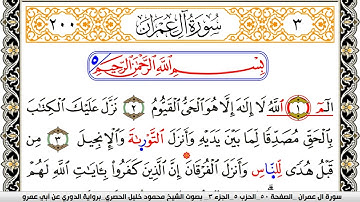 ٣ سُورَةُ آلِ عِمْرَان ٢٠٠
بِسْمِ اللَّهِ الرَّحْمَٰنِ الرَّحِيمِ ٥
الٓمٓ ١ اللَّهُ لَا إِلَٰهَ إِلَّا هُوَ الْحَيُّ الْقَيُّومُ ٢ نَزَّلَ عَلَيْكَ الْكِتَٰبَ
بِالْحَقِّ مُصَدِّقًا لِمَا بَيْنَ يَدَيْهِ وَأَنزَلَ التَّوْرَىٰةَ وَالْإِنجِيلَ ٣ مِن
قَبْلُ هُدًى لِلنَّاسِ وَأَنزَلَ الْفُرْقَانَ إِنَّ الَّذِينَ كَفَرُوا بِـَٔايَٰتِ اللَّهِ لَهُمْ
سورة آل عمران _ الصفحة ٥٠ _ الحزب ٥ _ الجزء ٣ _ بصوت الشيخ محمود خليل الحصري _ برواية الدوري عن أبي عمرو